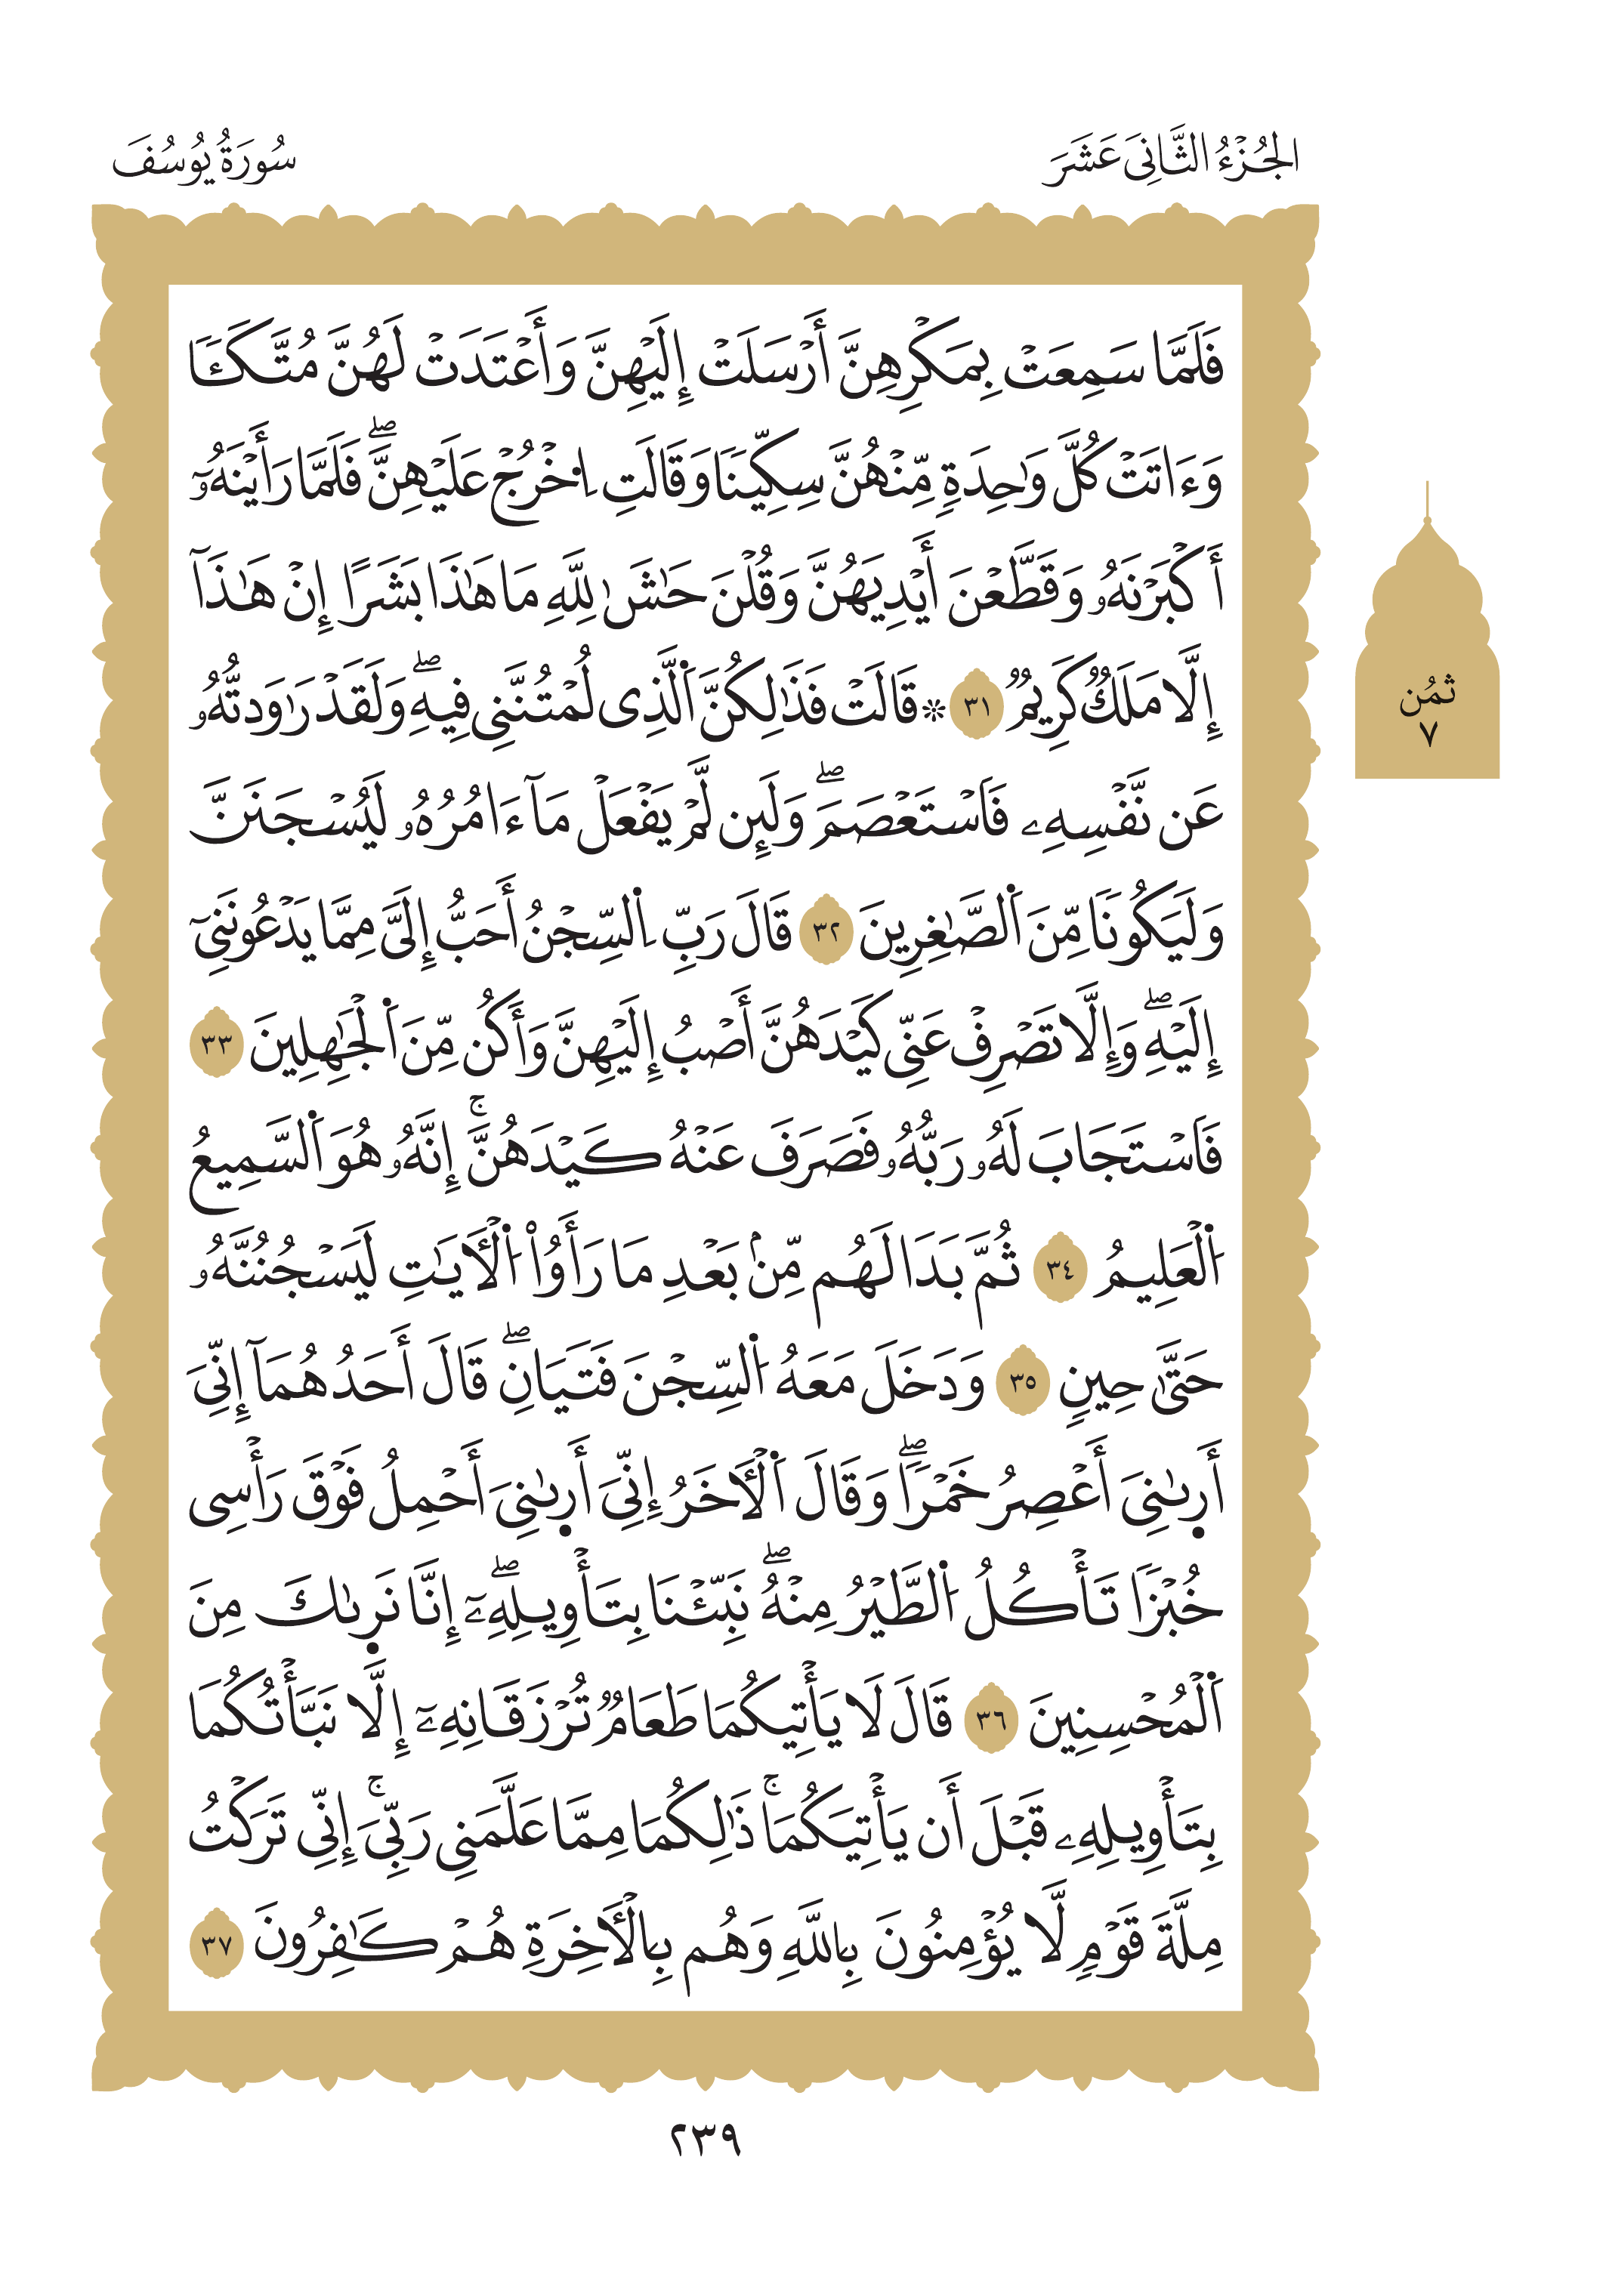 الجُزْءُ الثَّانِيَ عَشَرَ
سُورَةُ يُوسُفَ
فَلَمَّا سَمِعَتْ بِمَكْرِهِنَّ أَرْسَلَتْ إِلَيْهِنَّ وَأَعْتَدَتْ لَهُنَّ مُتَّكَـًٔا
وَءَاتَتْ كُلَّ وَٰحِدَةٍ مِّنْهُنَّ سِكِّينًا وَقَالَتِ ٱخْرُجْ عَلَيْهِنَّۖ فَلَمَّا رَأَيْنَهُۥٓ
أَكْبَرْنَهُۥ وَقَطَّعْنَ أَيْدِيَهُنَّ وَقُلْنَ حَٰشَىٰ لِلَّهِ مَا هَٰذَا بَشَرًا إِنْ هَٰذَآ
إِلَّا مَلَكٌ كَرِيمٌ ٣١ ۞ قَالَتْ فَذَٰلِكُنَّ ٱلَّذِى لُمْتُنَّنِى فِيهِۖ وَلَقَدْ رَٰوَدتُّهُۥ
عَن نَّفْسِهِۦ فَٱسْتَعْصَمَۖ وَلَئِن لَّمْ يَفْعَلْ مَآ ءَامُرُهُۥ لَيُسْجَنَنَّ
وَلَيَكُونًا مِّنَ ٱلصَّٰغِرِينَ ٣٢ قَالَ رَبِّ ٱلسِّجْنُ أَحَبُّ إِلَىَّ مِمَّا يَدْعُونَنِىٓ
إِلَيْهِۖ وَإِلَّا تَصْرِفْ عَنِّى كَيْدَهُنَّ أَصْبُ إِلَيْهِنَّ وَأَكُن مِّنَ ٱلْجَٰهِلِينَ ٣٣
فَٱسْتَجَابَ لَهُۥ رَبُّهُۥ فَصَرَفَ عَنْهُ كَيْدَهُنَّۚ إِنَّهُۥ هُوَ ٱلسَّمِيعُ
ٱلْعَلِيمُ ٣٤ ثُمَّ بَدَا لَهُم مِّنۢ بَعْدِ مَا رَأَوُا۟ ٱلْأٓيَٰتِ لَيَسْجُنُنَّهُۥ
حَتَّىٰ حِينٍ ٣٥ وَدَخَلَ مَعَهُ ٱلسِّجْنَ فَتَيَانِۖ قَالَ أَحَدُهُمَآ إِنِّىَ
أَرٜىٰنِىَ أَعْصِرُ خَمْرًاۖ وَقَالَ ٱلْأٓخَرُ إِنِّىَ أَرٜىٰنِىَ أَحْمِلُ فَوْقَ رَأْسِى
خُبْزًا تَأْكُلُ ٱلطَّيْرُ مِنْهُۖ نَبِّئْنَا بِتَأْوِيلِهِۦٓۖ إِنَّا نَرٜىٰكَ مِنَ
ٱلْمُحْسِنِينَ ٣٦ قَالَ لَا يَأْتِيكُمَا طَعَامٌ تُرْزَقَانِهِۦٓ إِلَّا نَبَّأْتُكُمَا
بِتَأْوِيلِهِۦ قَبْلَ أَن يَأْتِيَكُمَاۚ ذَٰلِكُمَا مِمَّا عَلَّمَنِى رَبِّىَۚ إِنِّى تَرَكْتُ
مِلَّةَ قَوْمٍ لَّا يُؤْمِنُونَ بِٱللَّهِ وَهُم بِٱلْأٓخِرَةِ هُمْ كَٰفِرُونَ ٣٧
ثمُن
٧
٢٣٩